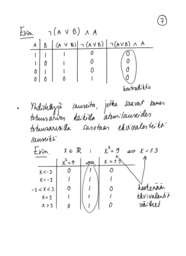 7
Esim. ¬(A ∨ B) ∧ A
A B (A ∨ B) ¬(A ∨ B) ¬(A ∨ B) ∧ A
1 1 1 0 0
1 0 1 0 0
0 1 1 0 0
0 0 0 1 0
• Yhdistettyjä lauseita, jotka saavat saman
totuusarvon kaikilla atomilauseiden
totuusarvoilla sanotaan ekvivalenteiksi
lauseiksi
Esim. x ∈ ℝ : x² = 9 ⇔ x = ±3
x² = 9 x = ±3
x < -3 0 1 0
x = -3 1 1 1
-3 < x < 3 0 1 0
x = 3 1 1 1
x > 3 0 1 0
keskenään
ekvivalentit